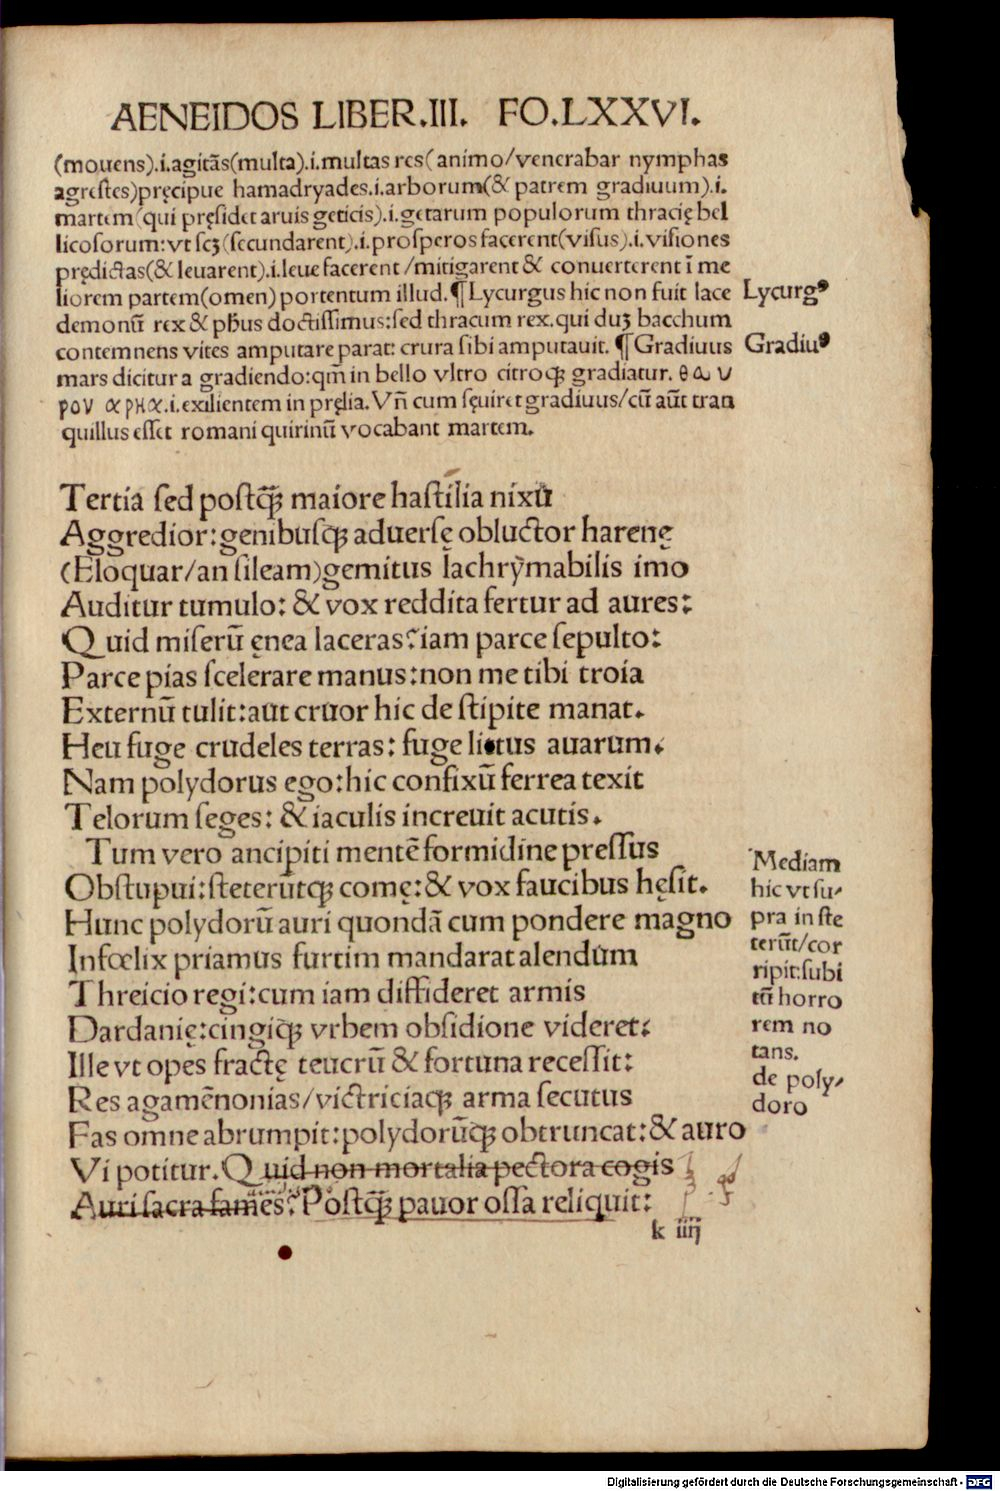 AENEIDOS LIBER.III. FO.LXXVI.
(mouens).i.agitãs(multa).i.multas res(animo/venerabar nymphas
agrestes)pręcipue hamadryades.i.arborum(& patrem gradiuum).i.
martem(qui pręsidet aruis geticis).i.getarum populorum thracię bel
licosorum:vt scꝫ(secundarent).i.prosperos facerent(visus).i.visiones
prędictas(& leuarent).i.leue facerent/mitigarent & conuerterent ĩ me
liorem partem(omen)portentum illud.¶Lycurgus hic non fuit lace
demonũ rex & pħus doctissimus:sed thracum rex.qui duꝫ bacchum
contemnens vites amputare parat: crura sibi amputauit. ¶Gradiuus
mars dicitur a gradiendo:qm̃ in bello vltro citroqꝫ gradiatur. θα υ
ρου αρηα.i.exilientem in pręlia.Vñ cum sęuiret gradiuus/cũ aũt tran
quillus esset romani quirinũ vocabant martem.
Lycurgꝰ
Gradiuꝰ
Tertia sed postq̃ꝫ maiore hastilia nixu
Aggredior:genibusqꝫ aduersę obluctor harenę
(Eloquar/an sileam)gemitus lachrymabilis imo
Auditur tumulo: & vox reddita fertur ad aures:
Quid miserũ ęnea laceras?iam parce sepulto:
Parce pias scelerare manus:non me tibi troia
Externũ tulit:aut cruor hic de stipite manat.
Heu fuge crudeles terras: fuge litus auarum.
Nam polydorus ego:hic confixũ ferrea texit
Telorum seges: & iaculis increuit acutis.
Tum vero ancipiti mentẽ formidine pressus
Obstupui:steterũtqꝫ comę:& vox faucibus hęsit.
Hunc polydorũ auri quondã cum pondere magno
Infœlix priamus furtim mandarat alendum
Threicio regi:cum iam diffideret armis
Dardanię:cingiqꝫ vrbem obsidione videret:
Ille vt opes fractę teucrũ & fortuna recessit:
Res agamẽnonias/victriciaqꝫ arma secutus
Fas omne abrumpit:polydorũqꝫ obtruncat:& auro
Vi potitur.Quid non mortalia pectora cogis
Auri sacra fames?Postq̃ꝫ pauor ossa reliquit:
k iiij
Mediam
hic vt su/
pra in ste
terũt/cor
ripit:subi
tũ horro
rem no
tans.
de poly/
doro
Digitalisierung gefördert durch die Deutsche Forschungsgemeinschaft - DFG